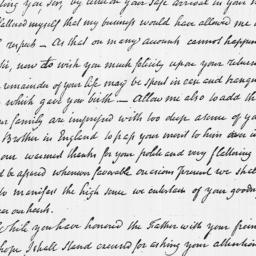 you Sir, by letter on your safe arrival in your
flattered myself that my business would have allowed me
respub — As that on many accounts cannot happen
now to wish you much felicity upon your return
remainder of your life may be spent in ease and tranqu
which gave you birth — Allow me also to add th
family are impressed with too deep a sense of yo
Brother in England to pass your merit to him over in
our warmest thanks for your polite and very flattering
be assured whenever favorable occasions present we sha
to manifest the high sense we entertain of your goodn
our hearts.
While you have honored the Father with your frien
hope I shall stand excused for asking your attention